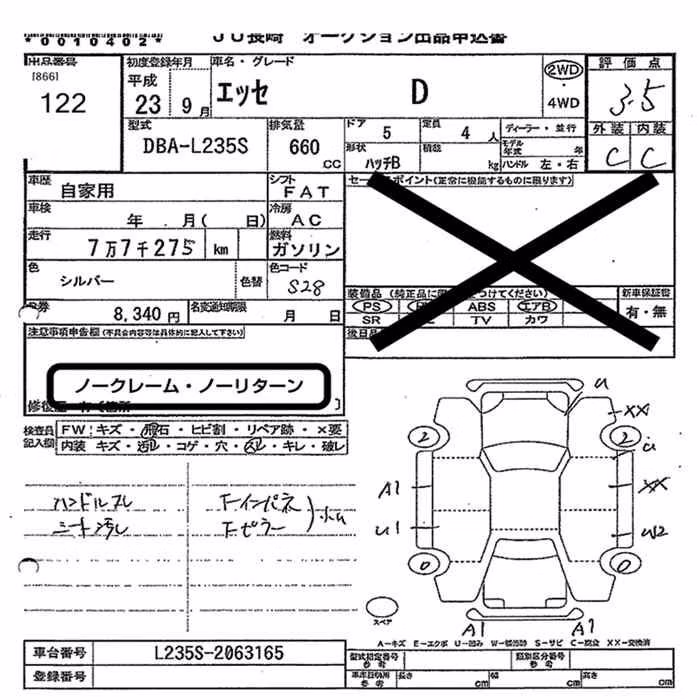 *0010402*
JU長崎 オークション出品申込書
出品番号 初度登録年月 車名・グレード 評価点
[866] 平成 2WD
122 23 9月 エッセ D ・ 3.5
4WD
型式 排気量 ドア 5 定員 4人 ディーラー・並行 外装 内装
DBA-L235S 660 CC 形状 ハッチB 積載 kg モデル年式 年 C C
ハンドル 左・右
車歴 自家用 シフト FAT セールスポイント(正常に機能するものに限ります)
車検 年 月( 日) 冷房 AC
走行 7万7千275 km 燃料 ガソリン
色 シルバー 色替 色コード S28
装備品(純正品に限 つけてください) 新車保証書
PS ABS エアB 有・無
SR TV カワ
券 8,340円 名変通知期限 月 日
注意事項申告欄(不具合内容等は具体的に記入して下さい) 後日品
ノークレーム・ノーリターン
検査員 FW:キズ・飛石・ヒビ割・リペア跡・×要
記入欄 内装 キズ・汚レ・コゲ・穴・スレ・キレ・破レ
ハンドルスレ
シート汚レ
F-インパネ
F-ピラー
小ム
u
XX
2 2
u
A1 XX
U1 W2
0 0
スペア
A1 A1
A-キズ E-エクボ U-凹み W-補修跡 S-サビ C-腐食 XX-交換済
車台番号 L235S-2063165 型式指定番号 参考 類別区分番号 参考
登録番号 車車庫証明用 参考 長さ cm 幅 cm 高さ cm